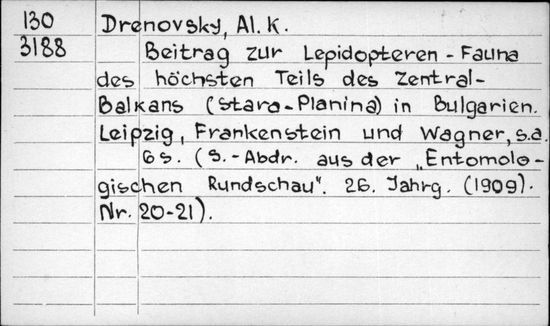 130 Drenovsky, Al. K.
3188 Beitrag zur Lepidopteren-Fauna
des höchsten Teils des Zentral-
Balkans (Stara-Planina) in Bulgarien.
Leipzig, Frankenstein und Wagner, s.a.
6 s. (S.-Abdr. aus der „Entomolo-
gischen Rundschau". 26. Jahrg. (1909).
Nr. 20-21).